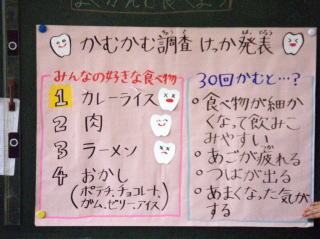 よくかんで食べよう
かむかむ調査けっか発表
みんなの好きな食べ物
1 カレーライス
2 肉
3 ラーメン
4 おかし
(ポテチ、チョコレート、
ガム、ゼリー、アイス)
30回かむと…?
○食べ物が細か
くなって飲みこ
みやすい
○あごが疲れる
○つばが出る
○あまくなった気が
する